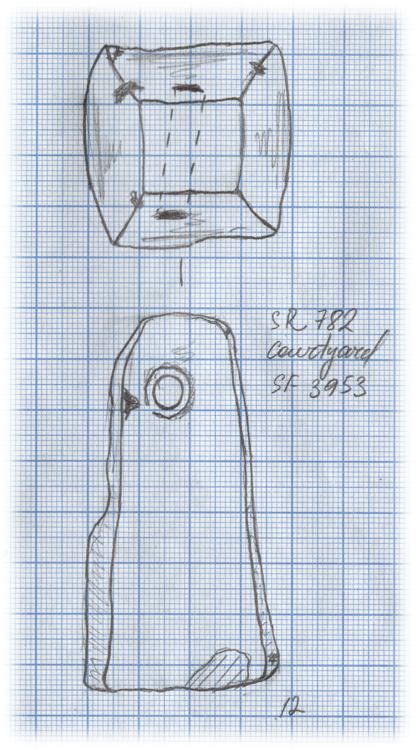 SR 782
Courtyard
SF 3953
12